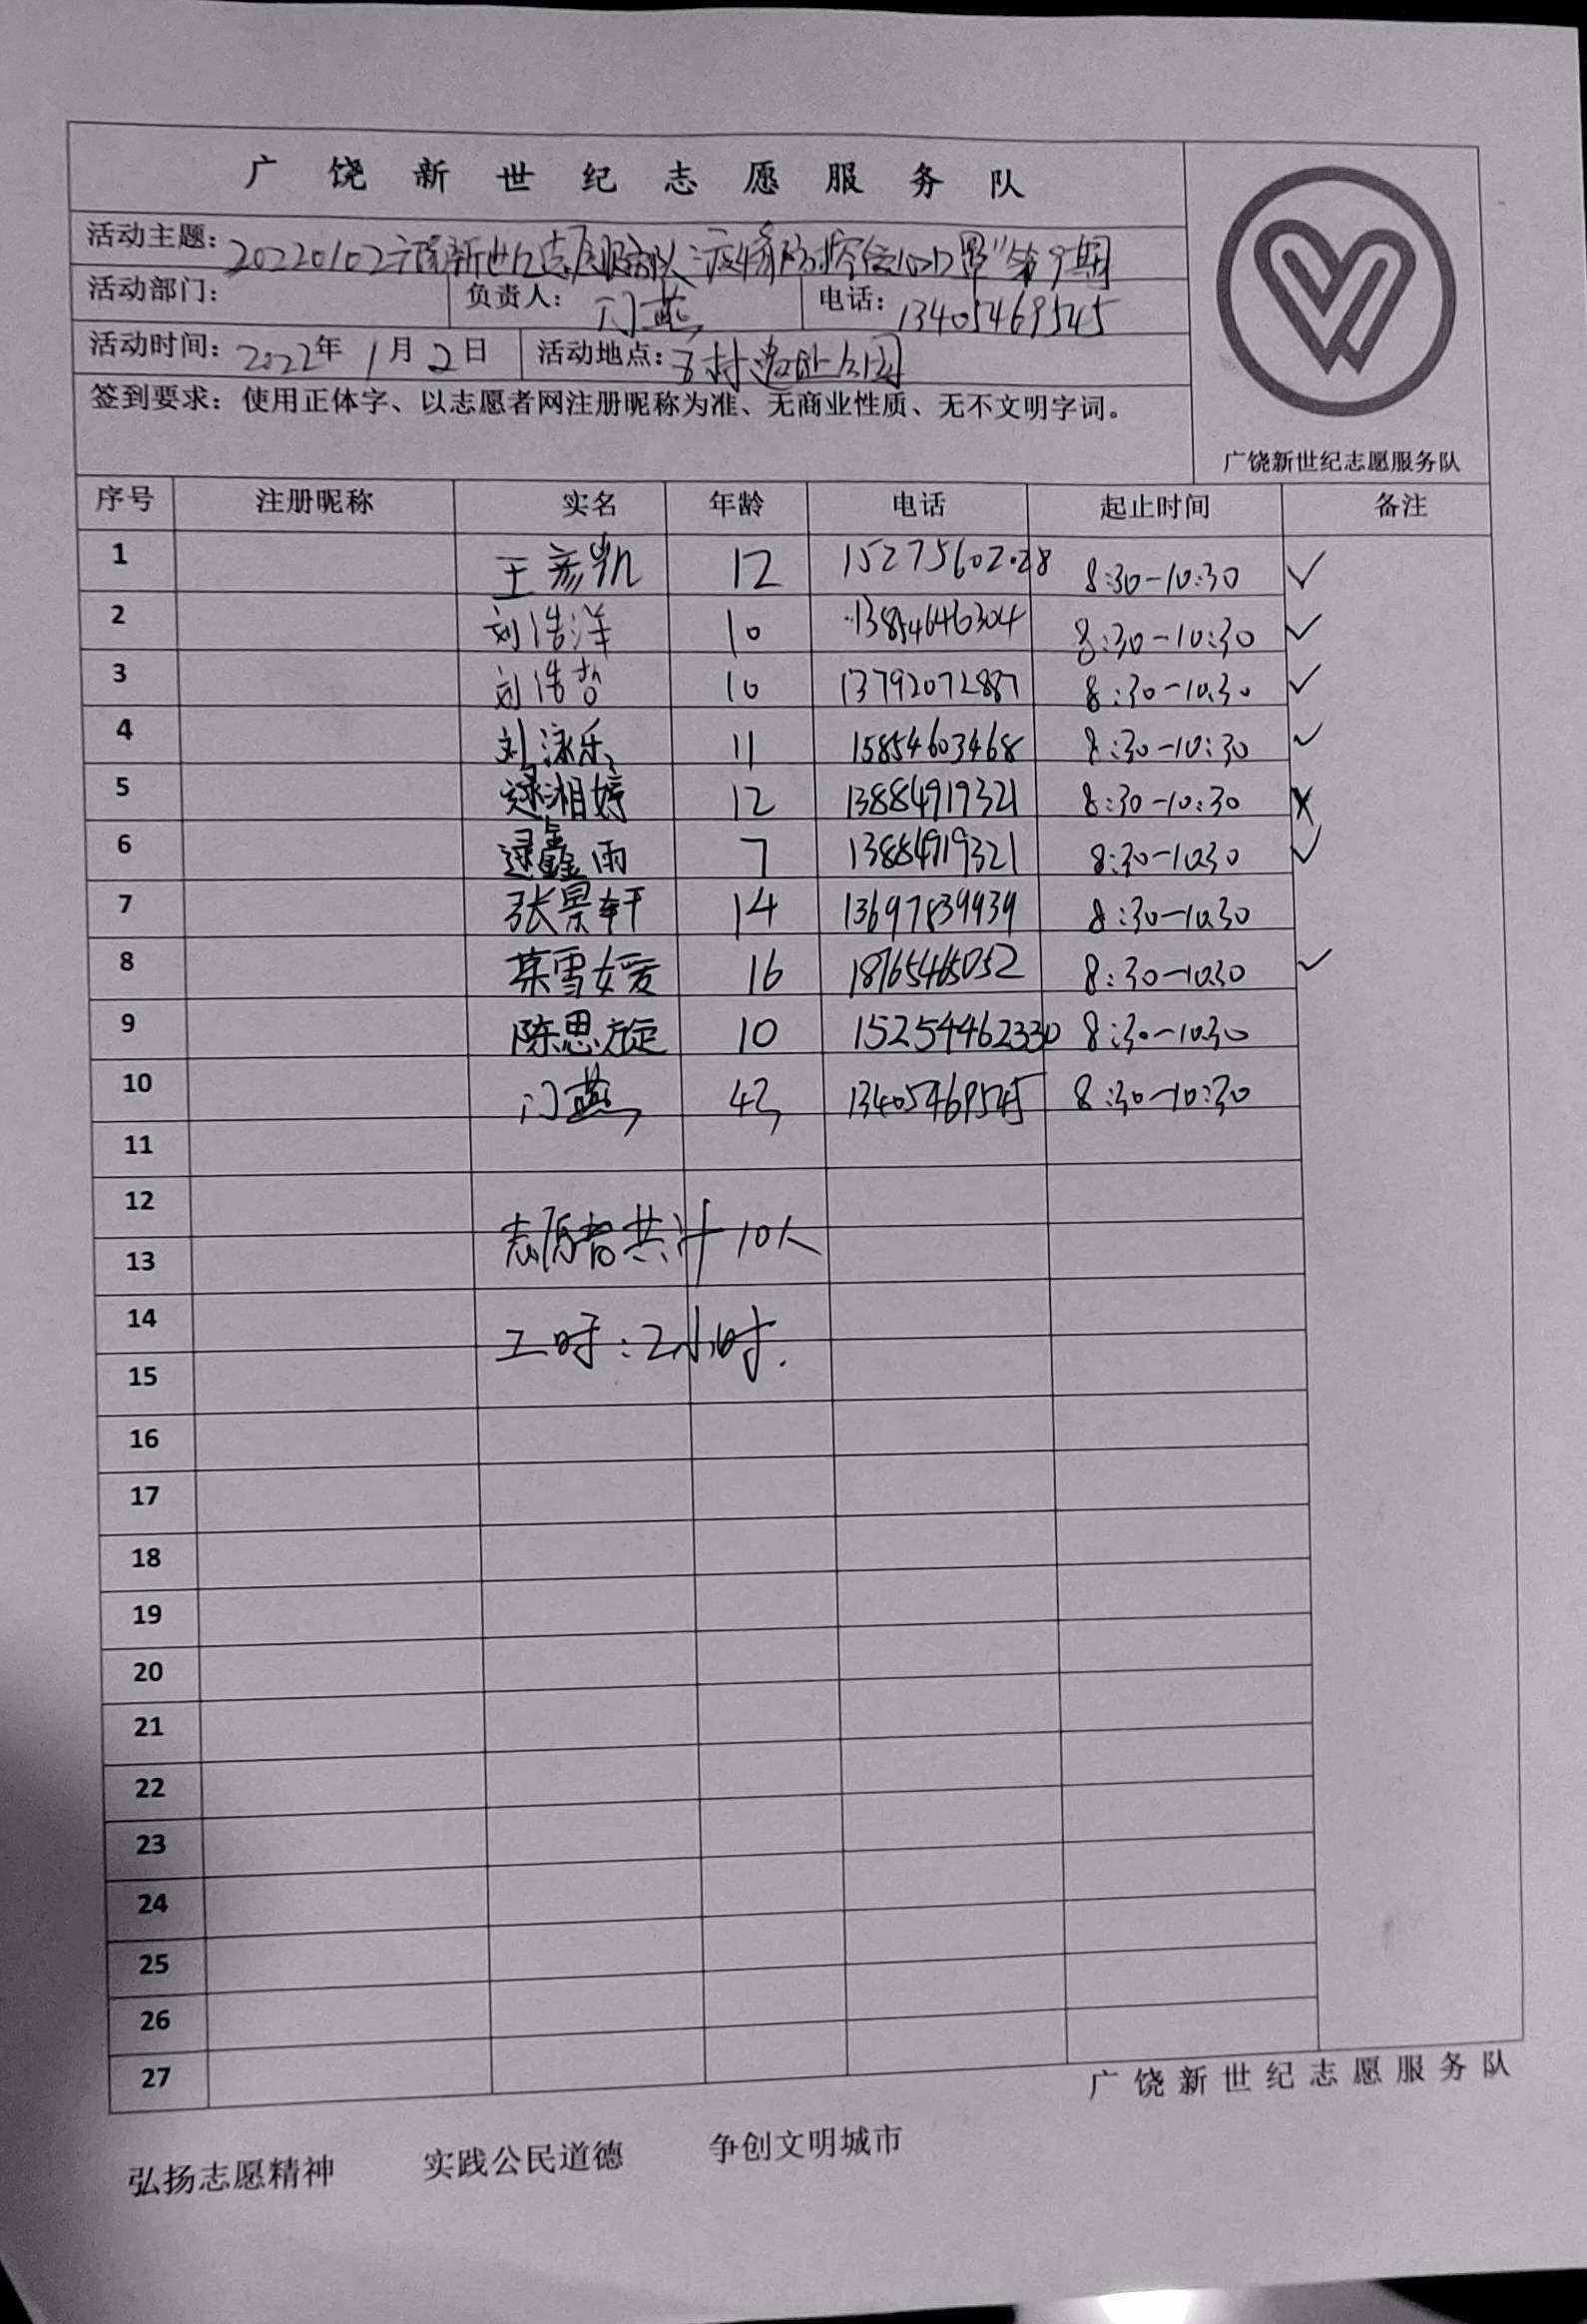 广饶新世纪志愿服务队
活动主题：20220102广饶新世纪志愿服务队"疫情防控 口罩"第9期
活动部门： 负责人：门燕 电话：13405469545
活动时间：2022年1月2日 活动地点：村遗址公园
签到要求：使用正体字、以志愿者网注册昵称为准、无商业性质、无不文明字词。
广饶新世纪志愿服务队
序号 注册昵称 实名 年龄 电话 起止时间 备注
1 王彦凯 12 15275602028 8:30-10:30 ✓
2 刘浩洋 10 13854646304 8:30-10:30 ✓
3 刘浩哲 10 13792072887 8:30-10:30 ✓
4 刘泳乐 11 15854603468 8:30-10:30 ✓
5 逯湘婷 12 13884919321 8:30-10:30 ✗
6 逯鑫雨 7 13884919321 8:30-10:30 ✓
7 张景轩 14 13697839939 8:30-10:30
8 雪媛 16 18765465052 8:30-10:30 ✓
9 陈思旋 10 15254462330 8:30-10:30
10 门燕 43 13405469545 8:30-10:30
11
12
志愿者共计10人
13
14
工时：2小时.
15
16
17
18
19
20
21
22
23
24
25
26
27
广饶新世纪志愿服务队
弘扬志愿精神 实践公民道德 争创文明城市